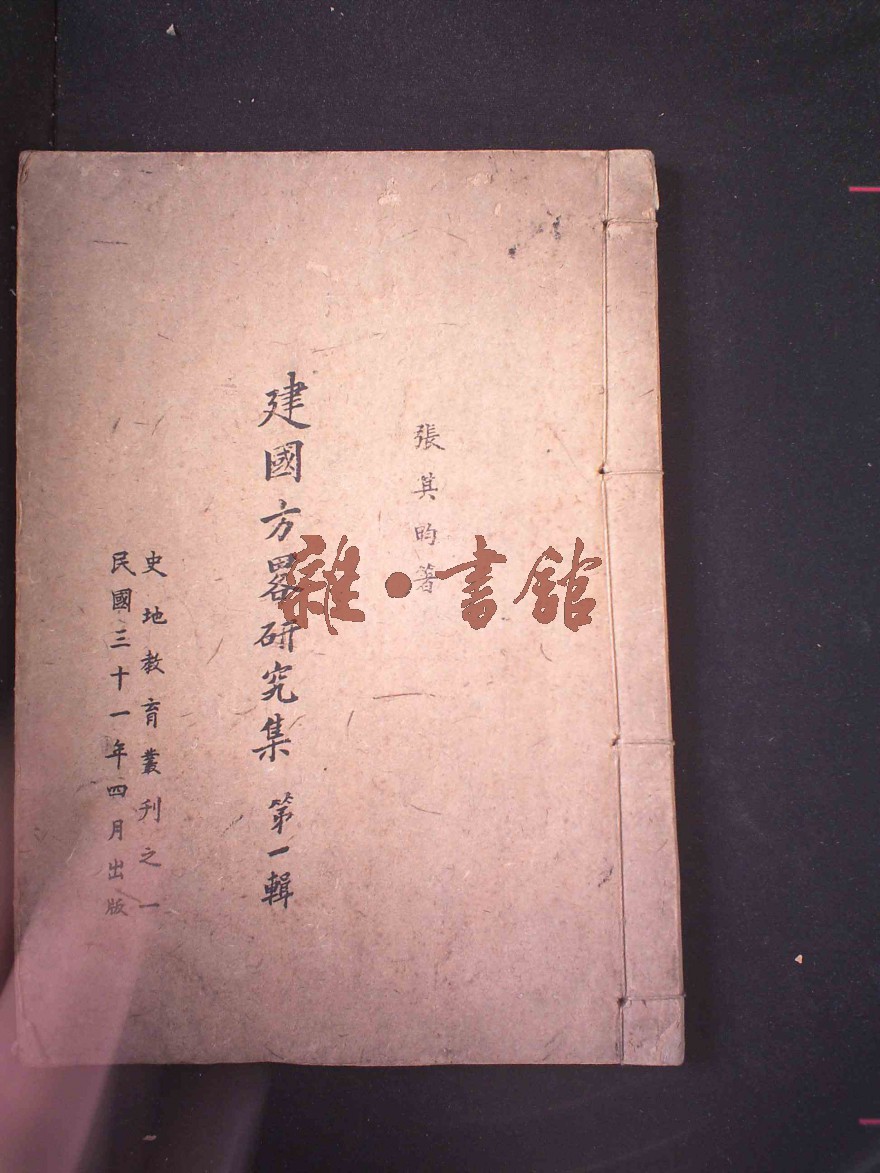 張其昀著
建國方畧研究集 第一輯
史地教育叢刊之一
民國三十一年四月出版
雜·書館